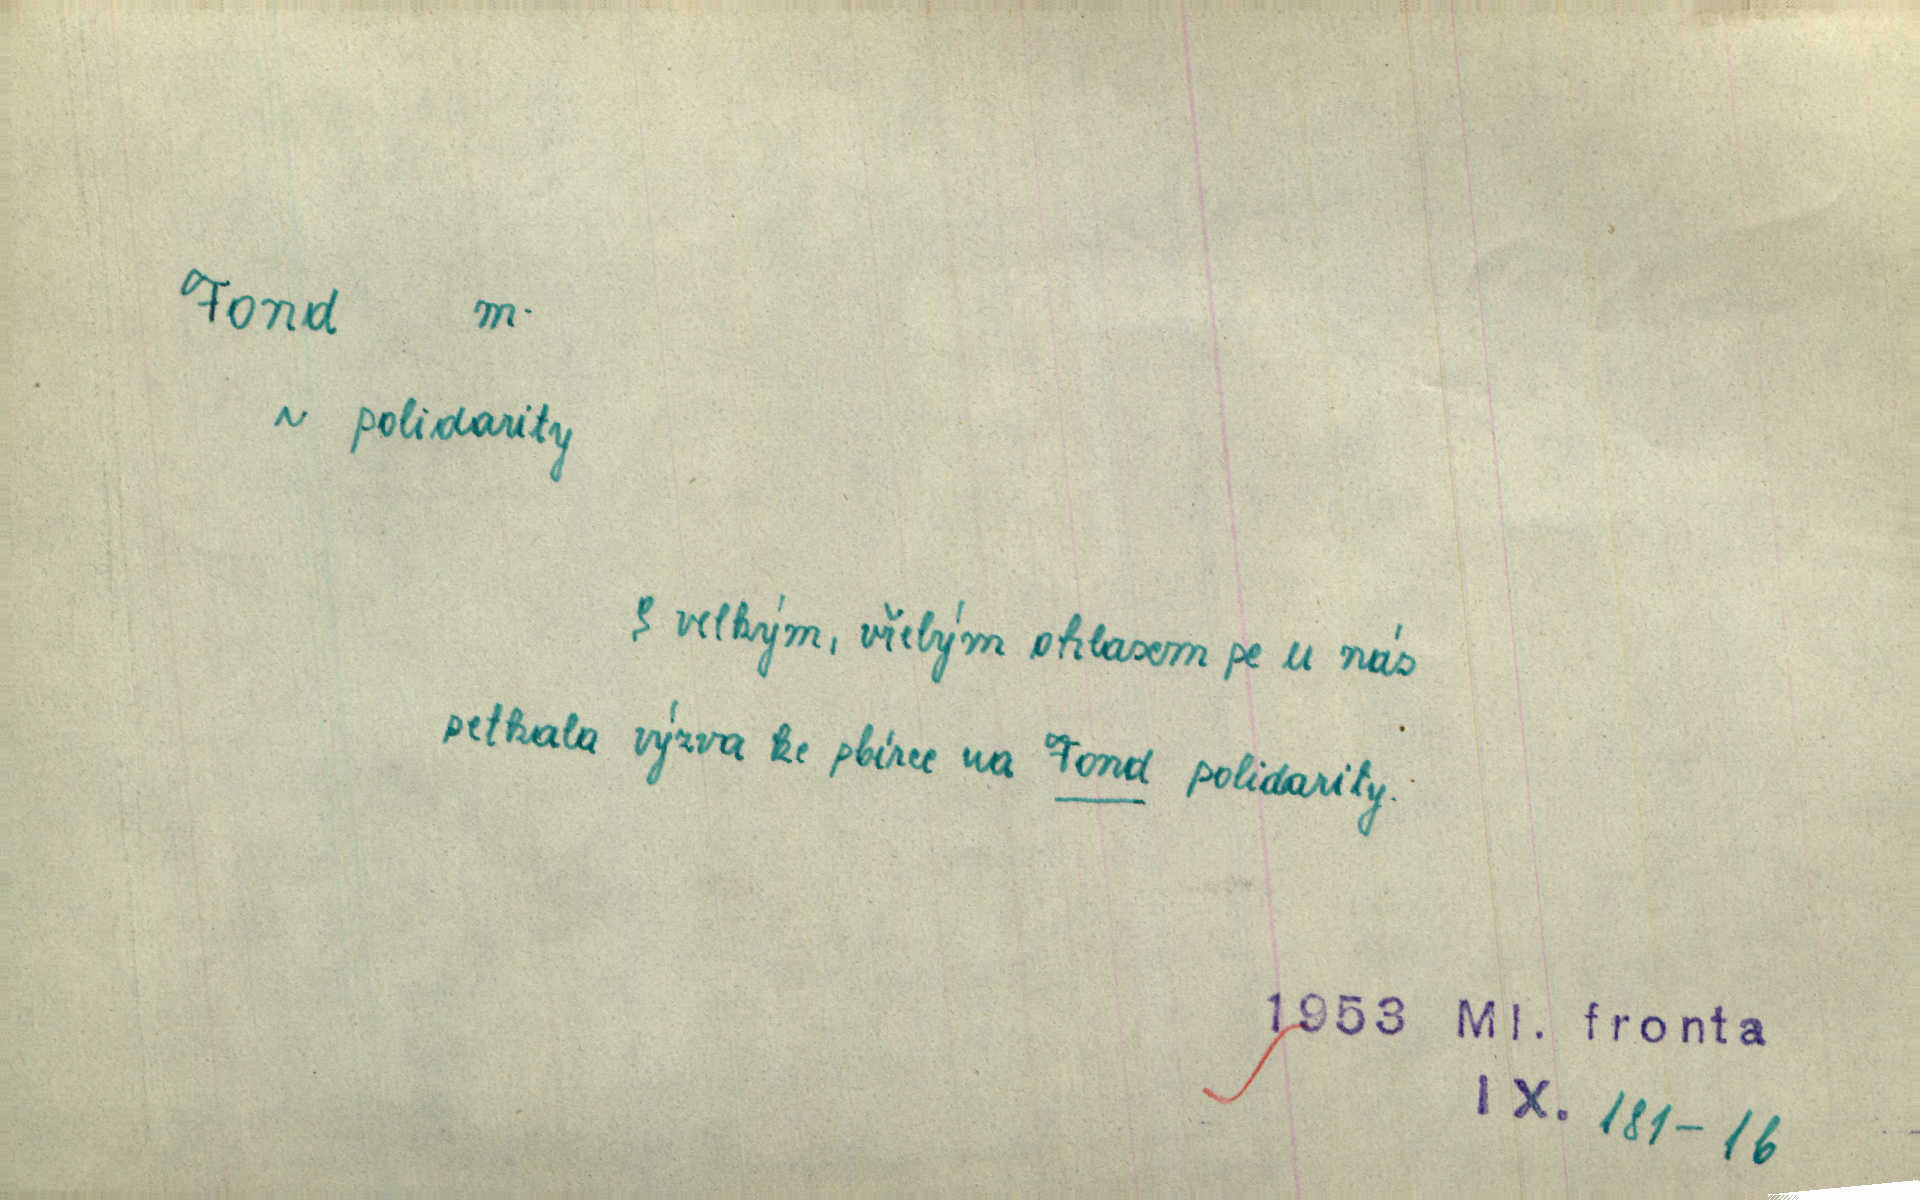 Fond m.
~ solidarity
S velkým, vřelým ohlasem se u nás
setkala výzva ke sbírce na Fond solidarity.
1953 Ml. fronta
IX. 181-16